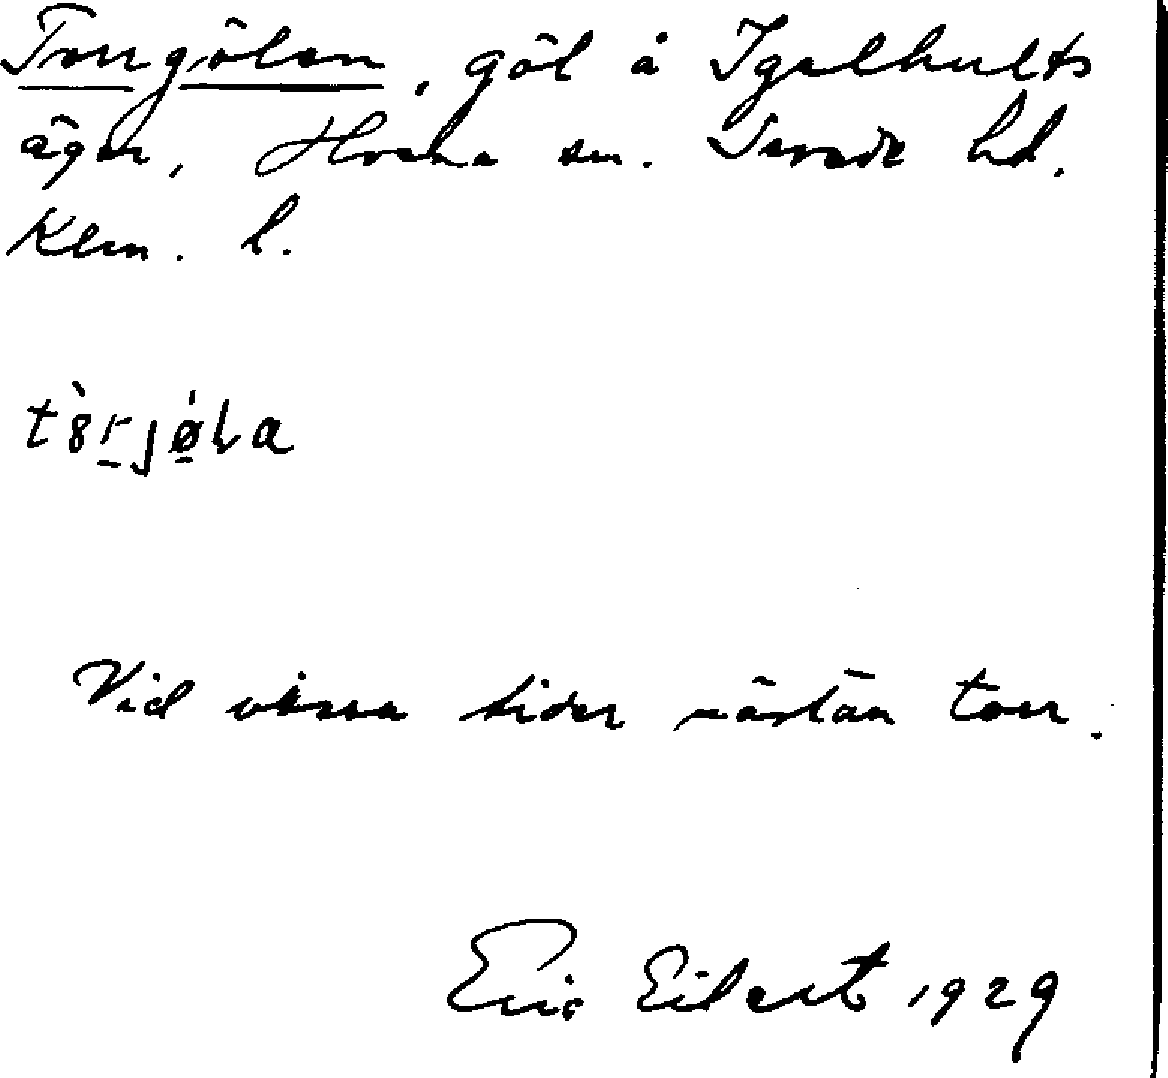 Torrgölen, göl å Igelhults
ägor, Hvena sn. Sevede hd.
Klm. l.
t8̀rjǿla
Vid vissa tider nästan torr.
Eric Eilert 1929